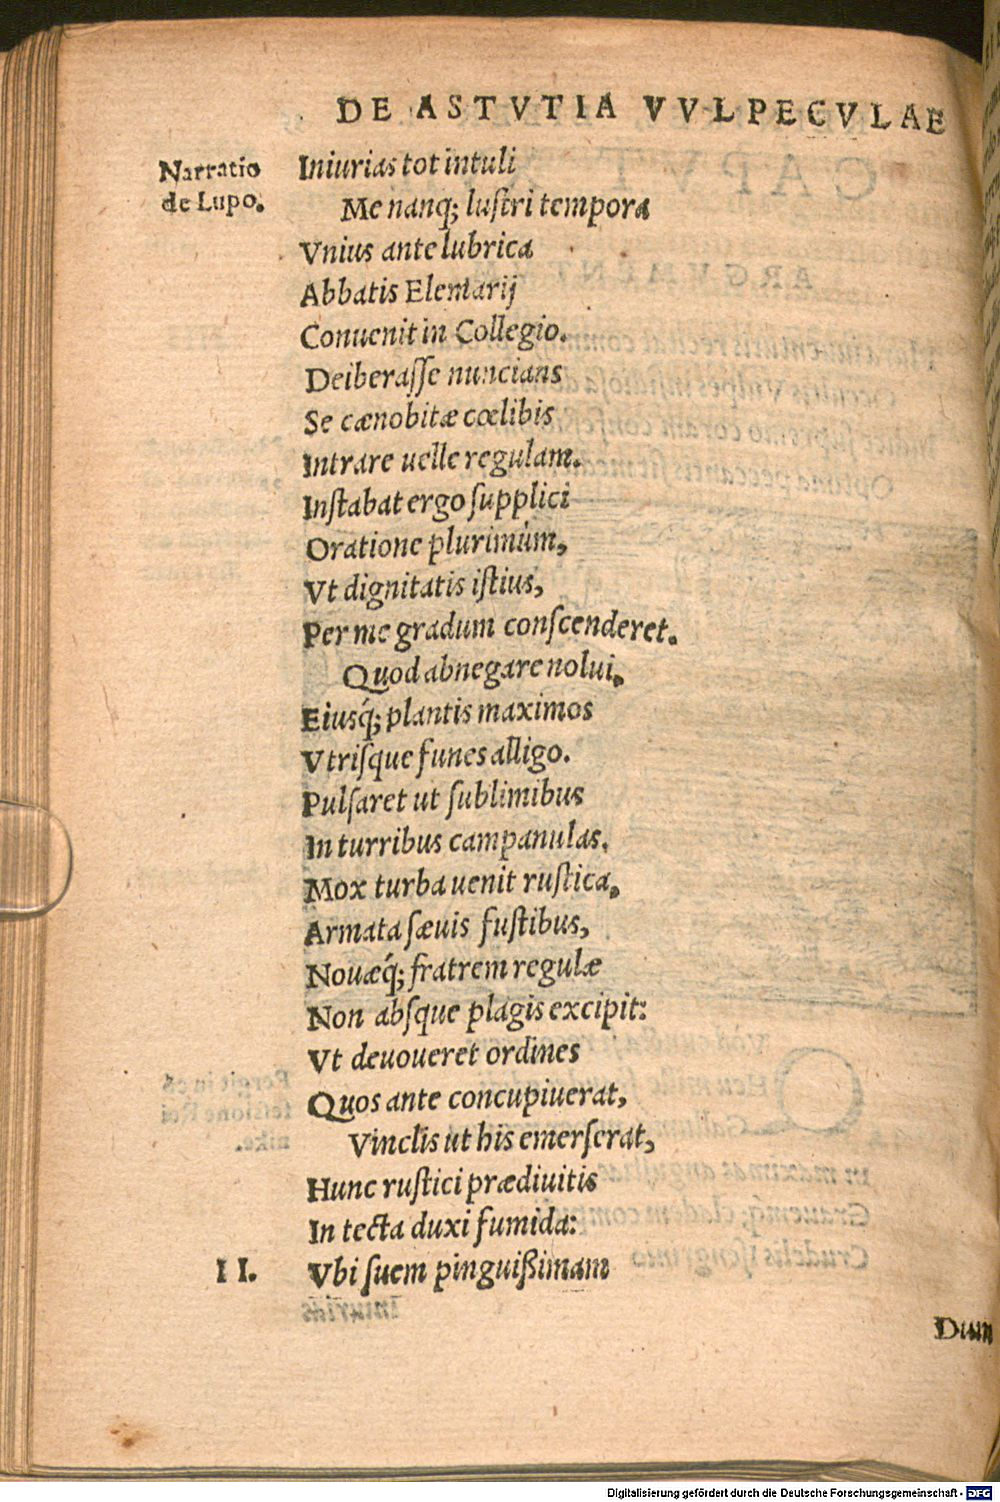 DE ASTVTIA VVLPECVLAE
Narratio
de Lupo.
Iniurias tot intuli
Me nanq; lustri tempora
Vnius ante lubrica
Abbatis Elemarij
Conuenit in Collegio.
Deiberasse nuncians
Se cænobitæ cœlibis
Intrare uelle regulam.
Instabat ergo supplici
Oratione plurimùm,
Vt dignitatis istius,
Per me gradum conscenderet.
Quod abnegare nolui.
Eiusq́; plantis maximos
Vtrisque funes alligo.
Pulsaret ut sublimibus
In turribus campanulas.
Mox turba uenit rustica.
Armata sæuis fustibus,
Nouæq́; fratrem regulæ
Non absque plagis excipit:
Vt deuoueret ordines
Quos ante concupiuerat,
Vinclis ut his emerserat,
Hunc rustici prædiuitis
In tecta duxi fumida:
II. Vbi suem pinguißimam
Dum
Digitalisierung gefördert durch die Deutsche Forschungsgemeinschaft - DFG